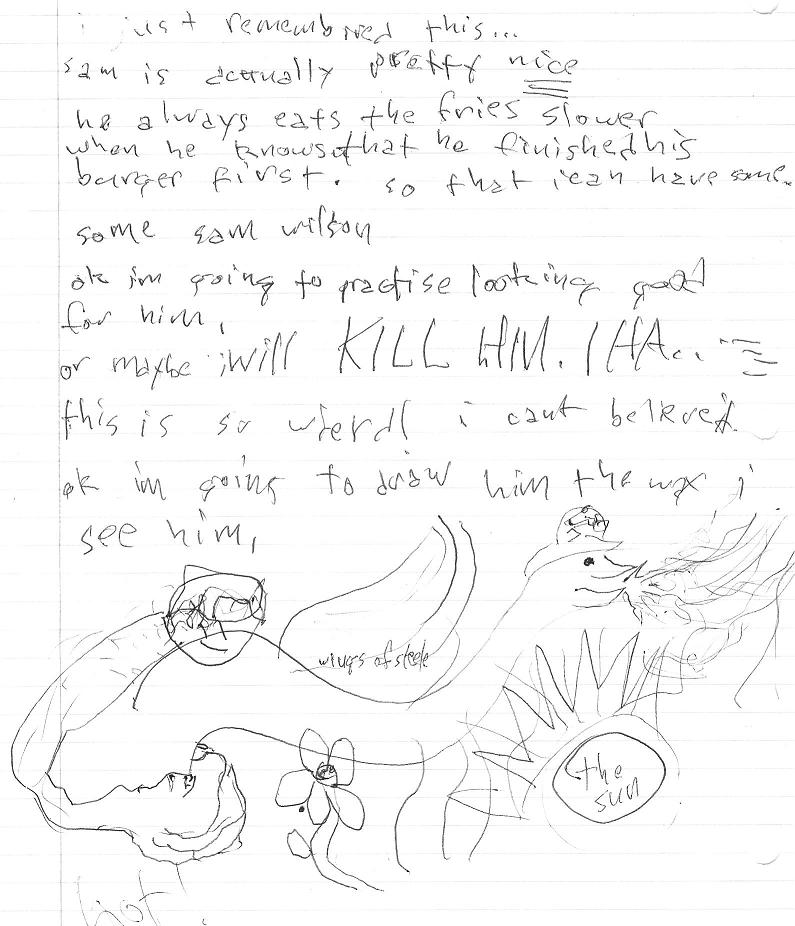 i just remembred this...
sam is actually pretty nice
he always eats the fries slower
when he knows that he finished his
burger first. so that i can have some.
some sam wilson
ok im going to practise looking good
for him,
or maybe i will KILL HIM. HA..
this is so wierd! i cant believe it.
ok im going to draw him the way i
see him,
wings of steele
the
sun
hot!